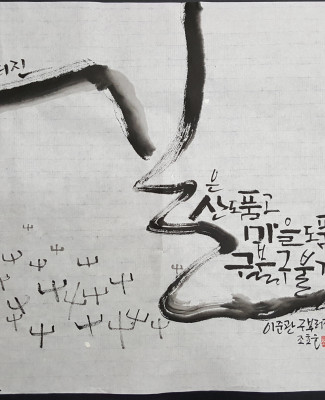 진
길은
산도품고
마을도품
구불구불
이준관 구부러